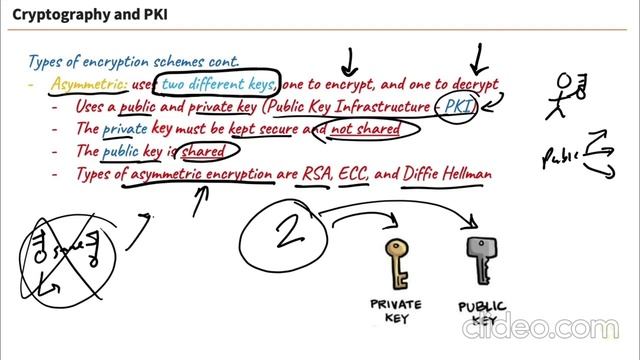 Cryptography and PKI
Types of encryption schemes cont.
- Asymmetric: uses two different keys, one to encrypt, and one to decrypt
- Uses a public and private key (Public Key Infrastructure - PKI)
- The private key must be kept secure and not shared
- The public key is shared
- Types of asymmetric encryption are RSA, ECC, and Diffie Hellman
Public
same
2
PRIVATE KEY
PUBLIC KEY
clideo.com